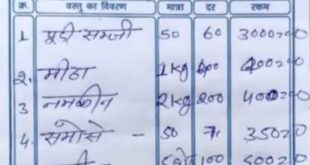 क्र. वस्तु का विवरण मात्रा दर रकम
1 पूड़ी सब्जी 50 60 3000=00
2. मीठा 1kg 400=00
3 नमकीन 2kg 200 400=00
4. समोसे - 50 7 350=00
100 500=00